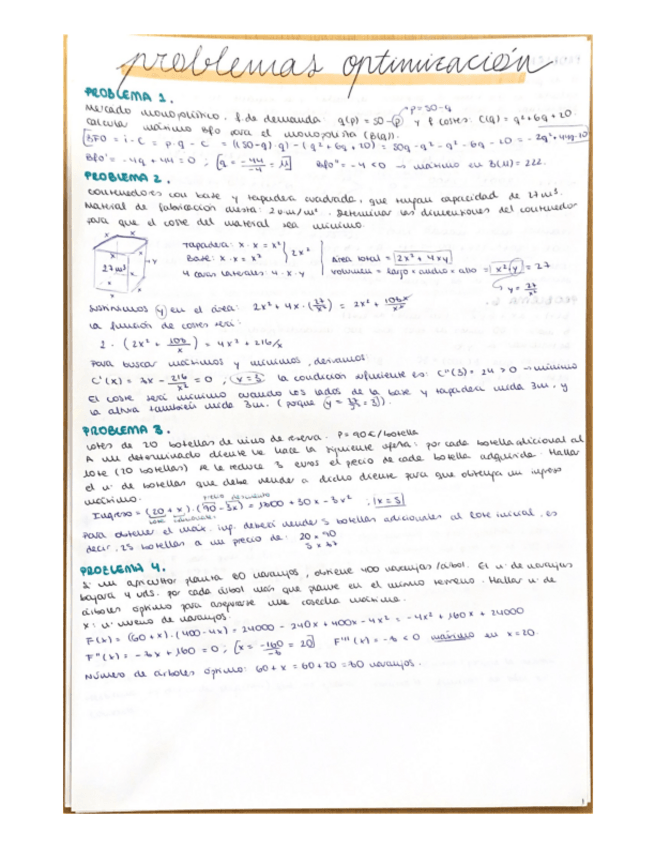 problemas optimización
PROBLEMA 1.
Mercado monopolístico. f. de demanda: q(p) = 50-p → p=50-q y f costes: C(q) = q²+6q+20.
Calcular máximo Bfo para el monopolista (B(q)).
BFO = i-C = p·q-C = ((50-q)·q) - (q²+6q+20) = 50q-q²-q²-6q-20 = -2q²+44q-20
Bfo' = -4q+44=0; q = -44/-4 = 11 Bfo'' = -4 < 0 → máximo en B(11) = 222.
PROBLEMA 2.
contenedores con base y tapadera cuadrada, que tengan capacidad de 27m³.
Material de fabricación cuesta: 20m/m². Determinar las dimensiones del contenedor
para que el coste del material sea mínimo.
x x
27m³
y
x
x
Tapadera: x·x = x²
Base: x·x = x² } 2x²
4 caras laterales: 4·x·y
Área total = 2x²+4xy
volumen = largo × ancho × alto = x²y = 27
y = 27/x²
Sustituimos y en el área: 2x²+4x·(27/x²) = 2x²+108x/x²
la función de costes será:
2·(2x²+108/x) = 4x²+216/x
Para buscar máximos y mínimos, derivamos:
C'(x) = 8x - 216/x² = 0; x=3 la condición suficiente es: C''(3) = 24 > 0 → mínimo
El coste será mínimo cuando los lados de la base y tapadera mida 3m, y
la altura también mida 3m. (porque y = 27/3² = 3).
PROBLEMA 3.
lotes de 20 botellas de vino de reserva. P=90€/botella
A un determinado cliente le hace la siguiente oferta: por cada botella adicional al
lote (20 botellas) se le reduce 3 euros el precio de cada botella adquirida. Hallar
el nº de botellas que debe vender a dicho cliente para que obtenga un ingreso
máximo.
Precio descuento
Ingreso = (20+x)·(90-3x) = 1800+30x-3x²; x=5
Para obtener el máx. ing. deberá vender 5 botellas adicionales al lote inicial, es
decir, 25 botellas a un precio de: 20 × 90
PROBLEMA 4.
Si un agricultor planta 60 naranjos, obtiene 400 naranjas/árbol. El nº de naranjas
bajará 4 uds. por cada árbol más que plante en el mismo terreno. Hallar nº de
árboles óptimo para asegurarse una cosecha máxima.
x: nº nuevo de naranjos.
F(x) = (60+x)·(400-4x) = 24000-240x+400x-4x² = -4x²+160x+24000
F'(x) = -8x+160=0; x = -160/-8 = 20 F''(x) = -8 < 0 máximo en x=20.
Número de árboles óptimo: 60+x = 60+20 = 80 naranjos.